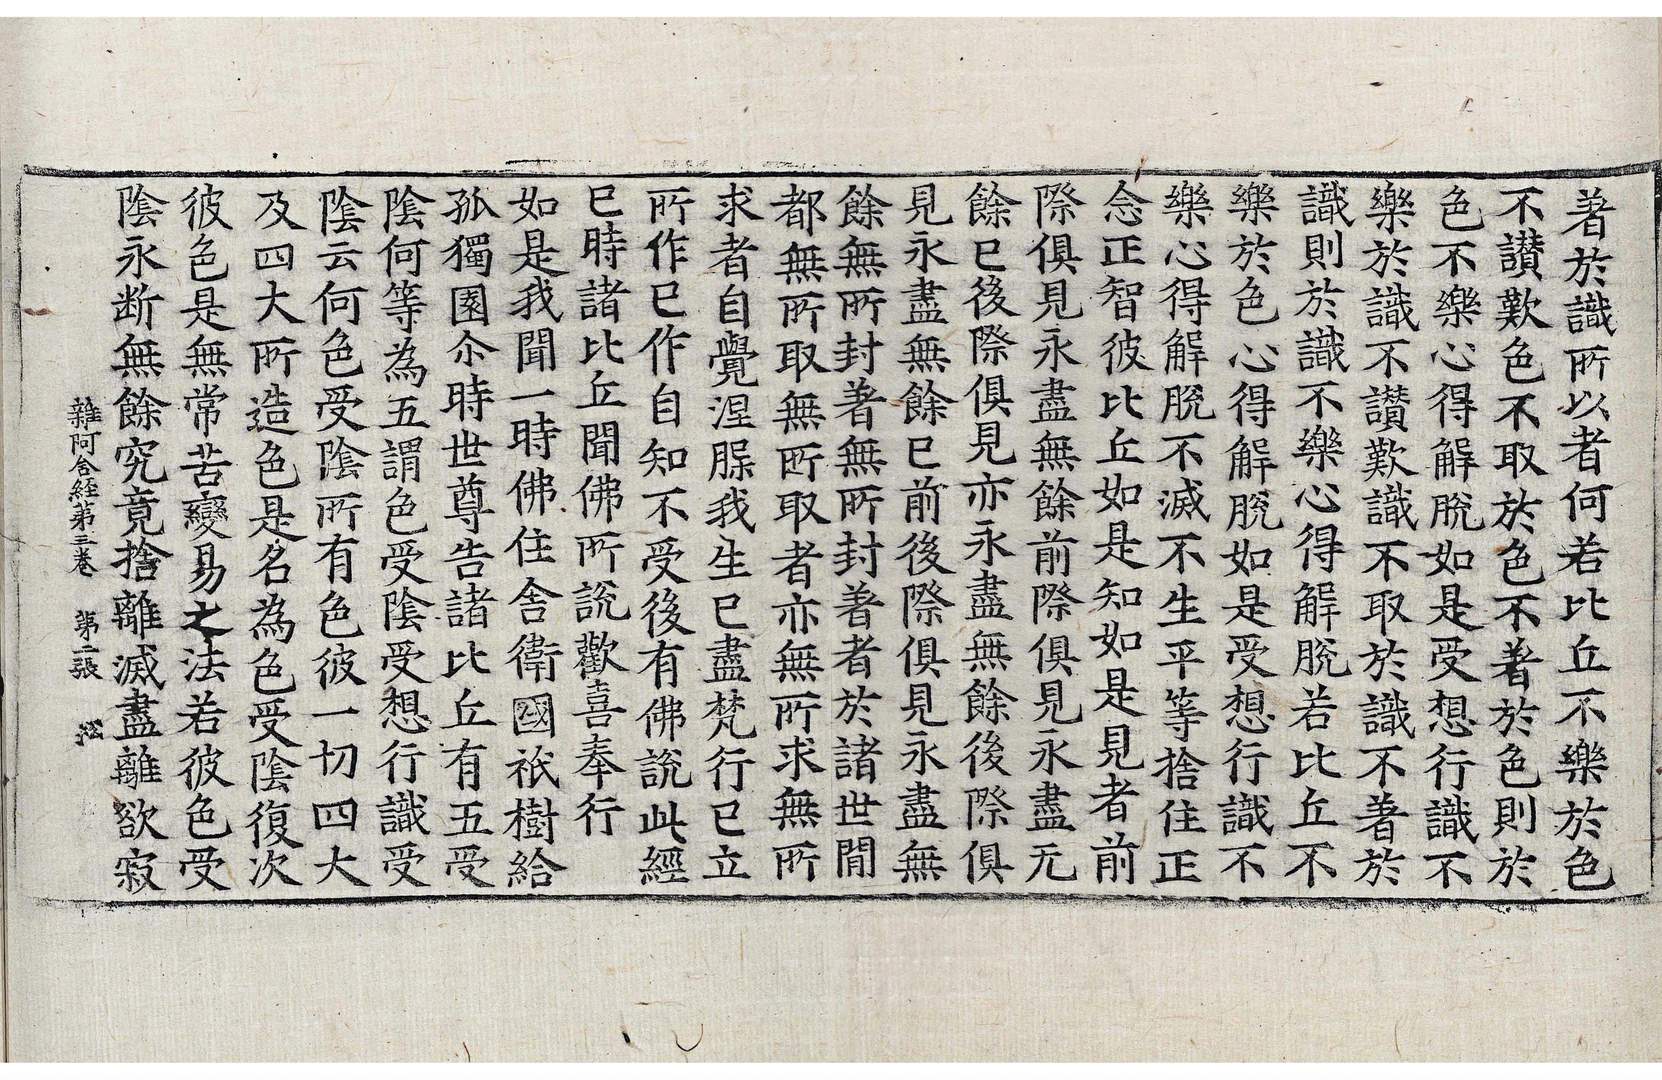 著於識所以者何若比丘不樂於色
不讃歎色不取於色不著於色則於
色不樂心得解脫如是受想行識不
樂於識不讃歎識不取於識不著於
識則於識不樂心得解脫若比丘不
樂於色心得解脫如是受想行識不
樂心得解脫不滅不生平等捨住正
念正智彼比丘如是知如是見者前
際俱見永盡無餘前際俱見永盡无
餘已後際俱見亦永盡無餘後際俱
見永盡無餘已前後際俱見永盡無
餘無所封著無所封著者於諸世間
都無所取無所取者亦無所求無所
求者自覺涅槃我生已盡梵行已立
所作已作自知不受後有佛說此經
已時諸比丘聞佛所說歡喜奉行
如是我聞一時佛住舍衛國祇樹給
孤獨園尒時世尊告諸比丘有五受
陰何等為五謂色受陰受想行識受
陰云何色受陰所有色彼一切四大
及四大所造色是名為色受陰復次
彼色是無常苦變易之法若彼色受
陰永断無餘究竟捨離滅盡離欲寂
雜阿含経第三巻 第二張 松